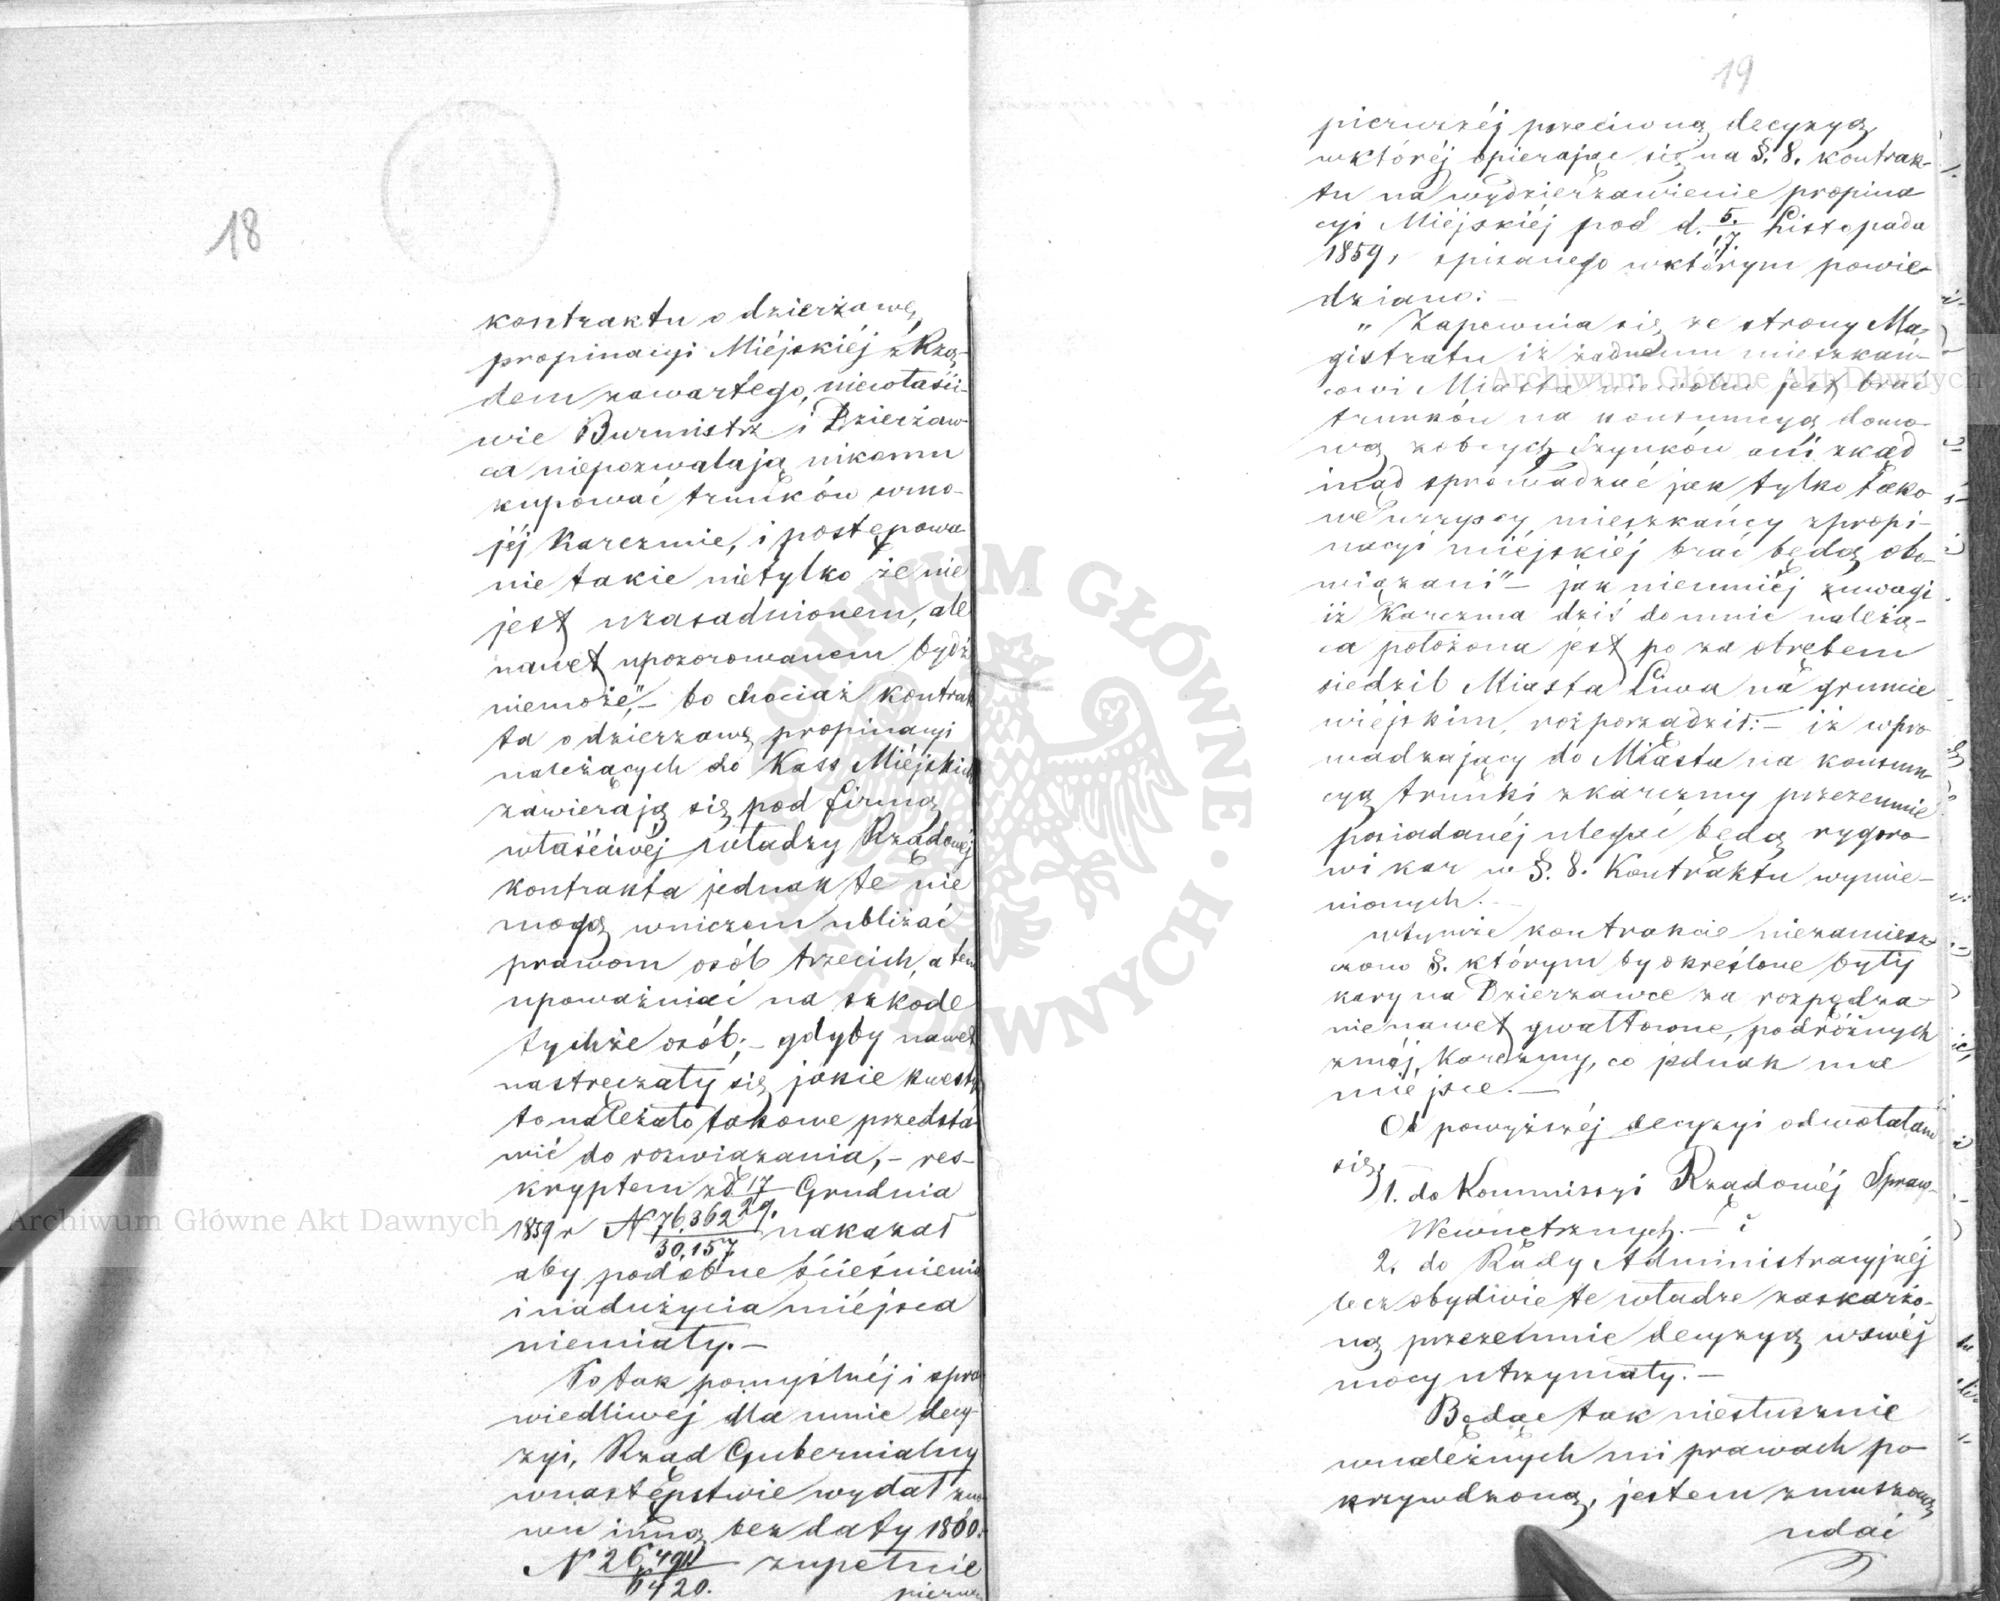 18
kontraktu o dzierżawę
propinacyi Miéjskiéj z Rzą-
dem zawartego, niewłaści-
wie Burmistrz i Dzierżaw-
ca niepozwalają nikomu
kupować trunków w mo-
jéj Karczmie, i postępowa
nie takie nietylko że nie
jest uzasadnionem, ale
nawet upozorowanem bydź
niemoże," – bo chociaż kontrak
ta o dzierżawę propinacyi
należących do Kass Miéjskich
zawierają się pod firmą
właściwéj władzy Rządowéj
kontrakta jednak te nie
mogą wniczem ubliżać
prawom osób trzecich, a tem
upoważniać na szkodę
tychże osób; – gdyby nawet
nastręczały się jakie kwest
to należało takowe przedsta-
wić do rozwiązania, – res-
kryptem z d 17/29. Grudnia
1859 r N 76.362/30.157 nakazał
aby podobne ścieśnienia
i nadużycia miéjsca
niemiały. –
Po tak pomyślnéj i spra
wiedliwéj dla mnie decy-
zyi, Rząd Gubernialny
w następstwie wydał zno
wu inną bez daty 1860.
N zupełnie
pierw
19
pierwszéj przeciwną decyzyą,
w któréj opierając się na §. 8. kontrak-
tu na wydzierżawienie propina
cyi Miéjskiéj pod d. 5/17. Listopada
1859, spisanego w którym powie-
dziano: –
„ Zapewnia się ze strony Ma-
gistratu iż żadnemu mieszkań-
cowi Miasta niewolno jest brać
trunków na konsumcyą domo-
wą z obcych Szynków ani zkąd
inąd sprowadzać jak tylko tako
we wszyscy mieszkańcy z propi-
nacyi miéjskiéj brać będą obo-
wiązani" – jak niemniéj z uwagi
iż Karczma dziś do mnie należą-
ca położona jest po za obrębem
siedzib Miasta Liwa na gruncie
wiéjskim, rozporządził: – iż wpro
wadzający do Miasta na konsum
cyą trunki z karczmy przezemnie
posiadanéj ulegać będą rygoro-
wi kar w §. 8. Kontraktu wymie-
nionych. –
w tymże kontrakcie niezamiesz-
czono §. którym by określone były
kary na Dzierżawce za rozpędza-
nie nawet gwałtowne, podróżnych
z méj Karczmy, co jednak ma
miejsce. –
Od powyższéj decyzyi odwołałam
się
1. do Kommissyi Rządowéj Spraw
Wewnętrznych. – i
2. do Rady Administracyjnéj
lecz obydwie te władze zaskarżo-
ną przezemnie decyzyą w swéj
mocy utrzymały. –
Będąc tak niesłusznie
w należnych mi prawach po
krzywdzoną, jestem zmuszoną
udać
Archiwum Główne Akt Dawnych
Archiwum Główne Akt Dawnych
ARCHIWUM GŁÓWNE AKT DAWNYCH